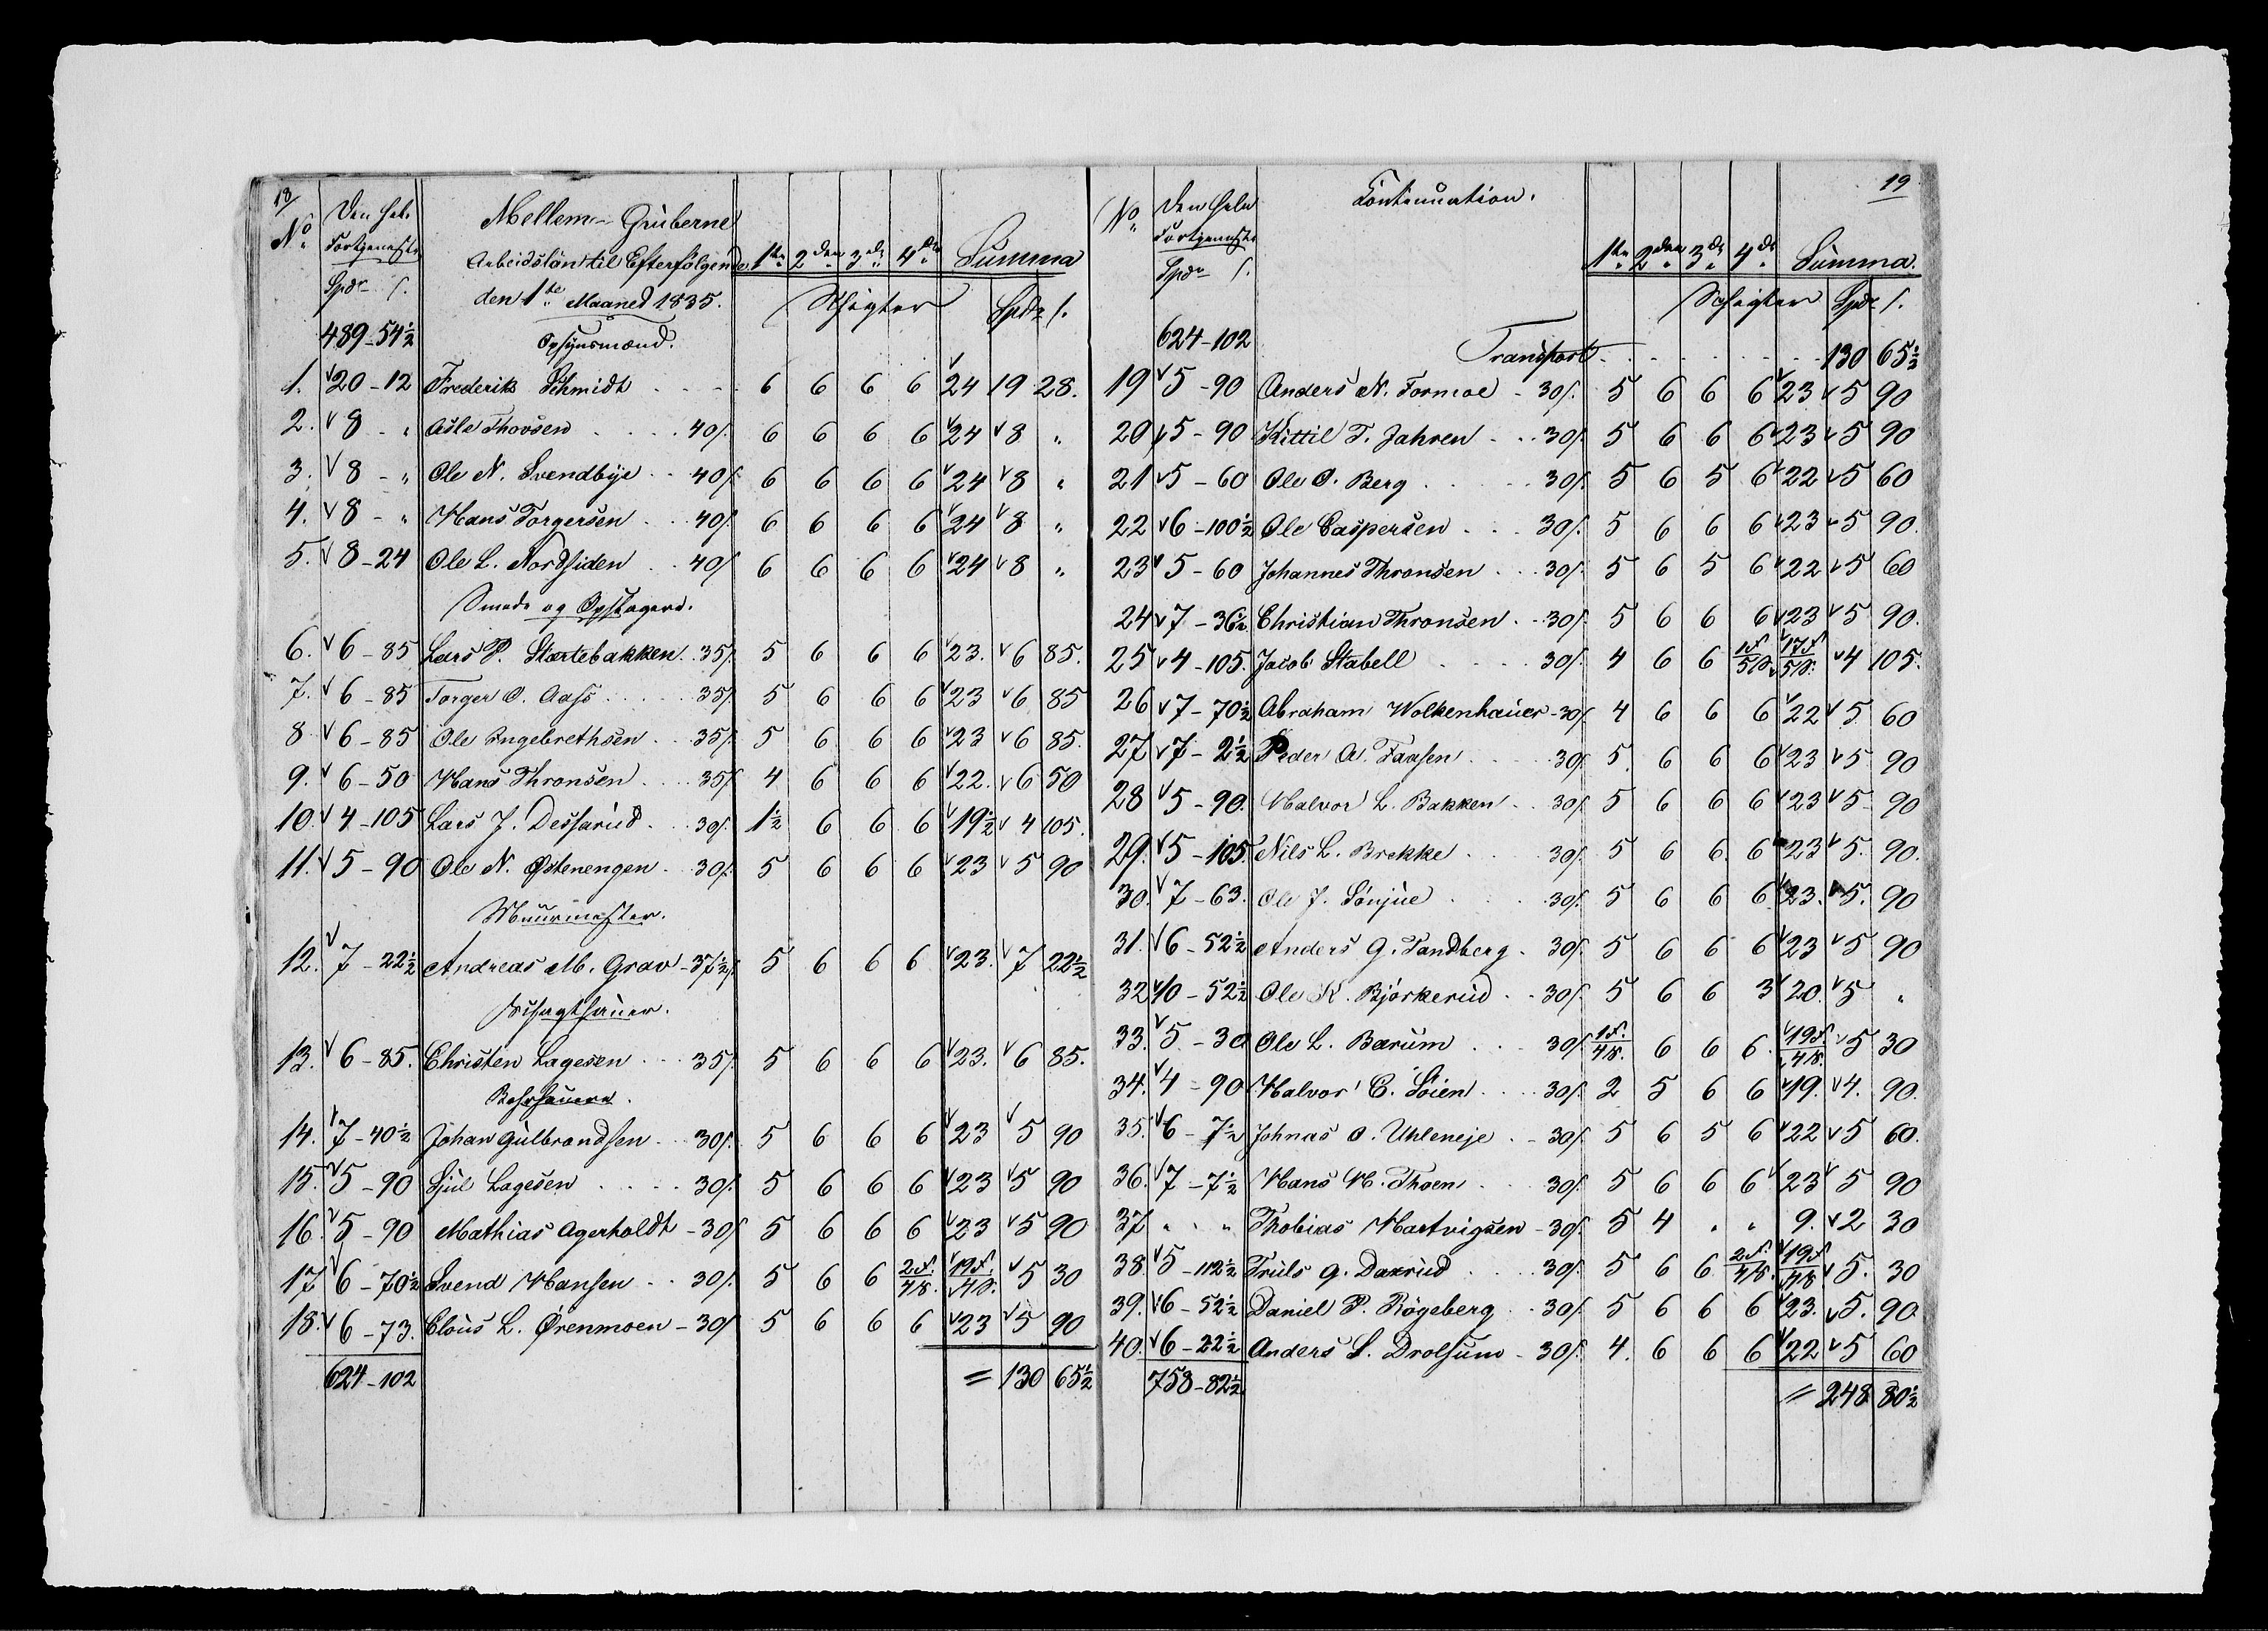 18/
No Den hele Fortjeneste Spdr s.
Mellem-Gruberne
Arbeidslön til Efterfölgende 1ste 2den 3die 4de Summa
den 1te Maaned 1835. Schigter Spdr s.
489-54½ Opsynsmænd.
1. 20-12 Frederik Schmidt 6 6 6 6 24 19 28.
2. 8 - " Asle Thovsen 40s. 6 6 6 6 24 8 "
3. 8 - " Ole N. Svendbye 40s. 6 6 6 6 24 8 "
4. 8 - " Hans Torgersen 40s. 6 6 6 6 24 8 "
5. 8-24 Ole L. Nordsiden 40s 6 6 6 6 24 8 "
Smede og Opstagere.
6. 6-85 Lars P. Stærtebakken. 35s. 5 6 6 6 23. 6 85.
7. 6-85 Torger O. Aass 35s. 5 6 6 6 23 6 85
8 6-85 Ole Engebrethsen 35s. 5 6 6 6 23 6 85.
9. 6-50 Hans Thronsen 35s 4 6 6 6 22. 6 50
10. 4-105 Lars J. Dessarud 30s. 1½ 6 6 6 19½ 4 105.
11. 5-90 Ole N. Østenengen 30s. 5 6 6 6 23 5 90
Muurmester.
12. 7-22½ Andreas M. Grav - 37½s. 5 6 6 6 23. 7 22½
13. 6-85. Christen Lagesen 35s. 5 6 6 6 23. 6 85.
Borhauere.
14. 7-40½ Johan Gulbrandsen 30s. 5 6 6 6 23 5 90
15. 5-90 Sjul Lagesen 30s. 5 6 6 6 23 5 90
16. 5-90 Mathias Agerholdt - 30s 5 6 6 6 23 5 90
17 6-70½ Svend Hansen 30s. 5 6 6 2S. 4/8. 19S. 4/8. 5 30
18. 6-73. Clous L. Ørenmoen - 30s 5 6 6 6 23 5 90
624-102 = 130 65½
19
No Den hele Fortjeneste Spdr s.
Continuation.
1ste 2den 3die 4de Summa.
Schigter Spdr s.
624-102 Transport 130 65½
19 5-90 Anders N. Formoe - 30s. 5 6 6 6 23 5 90
20 5-90 Kittil T. Jahren 30s. 5 6 6 6 23 5 90
21 5-60 Ole O. Berg 30s. 5 6 5 6 22 5 60
22 6-100½ Ole Caspersen 30s. 5 6 6 6 23 5 90.
23 5-60 Johannes Thronsen 30s. 5 6 5 6 22 5 60
24 7-36½ Christian Thronsen 30s. 5 6 6 6 23 5 90.
25 4-105. Jacob Stabell 30s. 4 6 6 1S 5/8. 17S 5/8. 4 105.
26 7-70½ Abraham Wolkenhauer - 30s. 4 6 6 6 22 5. 60
27 7-2½ Peder A. Faasen 30s 5. 6 6 6 23 5 90
28 5-90. Halvor L. Bakken 30s. 5 6 6 6 23 5 90
29. 5-105. Nils L. Brekke 30s. 5 6 6. 6 23 5. 90.
30. 7-63. Ole J. Sönjue 30s. 5 6 6 6 23. 5. 90
31. 6-52½ Anders G. Sandberg 30s. 5 6 6 6 23 5 90
32 10-52½ Ole K. Bjørkerud 30s. 5 6 6 3 20. 5 "
33. 5-30 Ole L. Bærum 30s 1S. 4/8. 6 6 6. 19S. 4/8. 5 30
34. 4-90 Halvor C. Söien 30s. 2 5 6 6 19. 4. 90.
35. 6-7½ Johnas O. Uhleneje - 30s. 5 6 5 6 22 5 60.
36. 7-7½ Hans H. Thoen 30s. 5 6 6 6 23 5 90
37 " " Thobias Hartvigsen - 30s. 5 4 " " 9. 2 30
38. 5-112½ Truls G. Daxrud 30s. 5 6 6 2S. 4/8. 19S 4/8 5. 30
39. 6-52½ Daniel P. Rögeberg 30s. 5 6 6 6 23. 5. 90.
40. 6-22½ Anders S. Drolsum - 30s. 4. 6 6 6 22 5 60
758-82½ = 248 80½